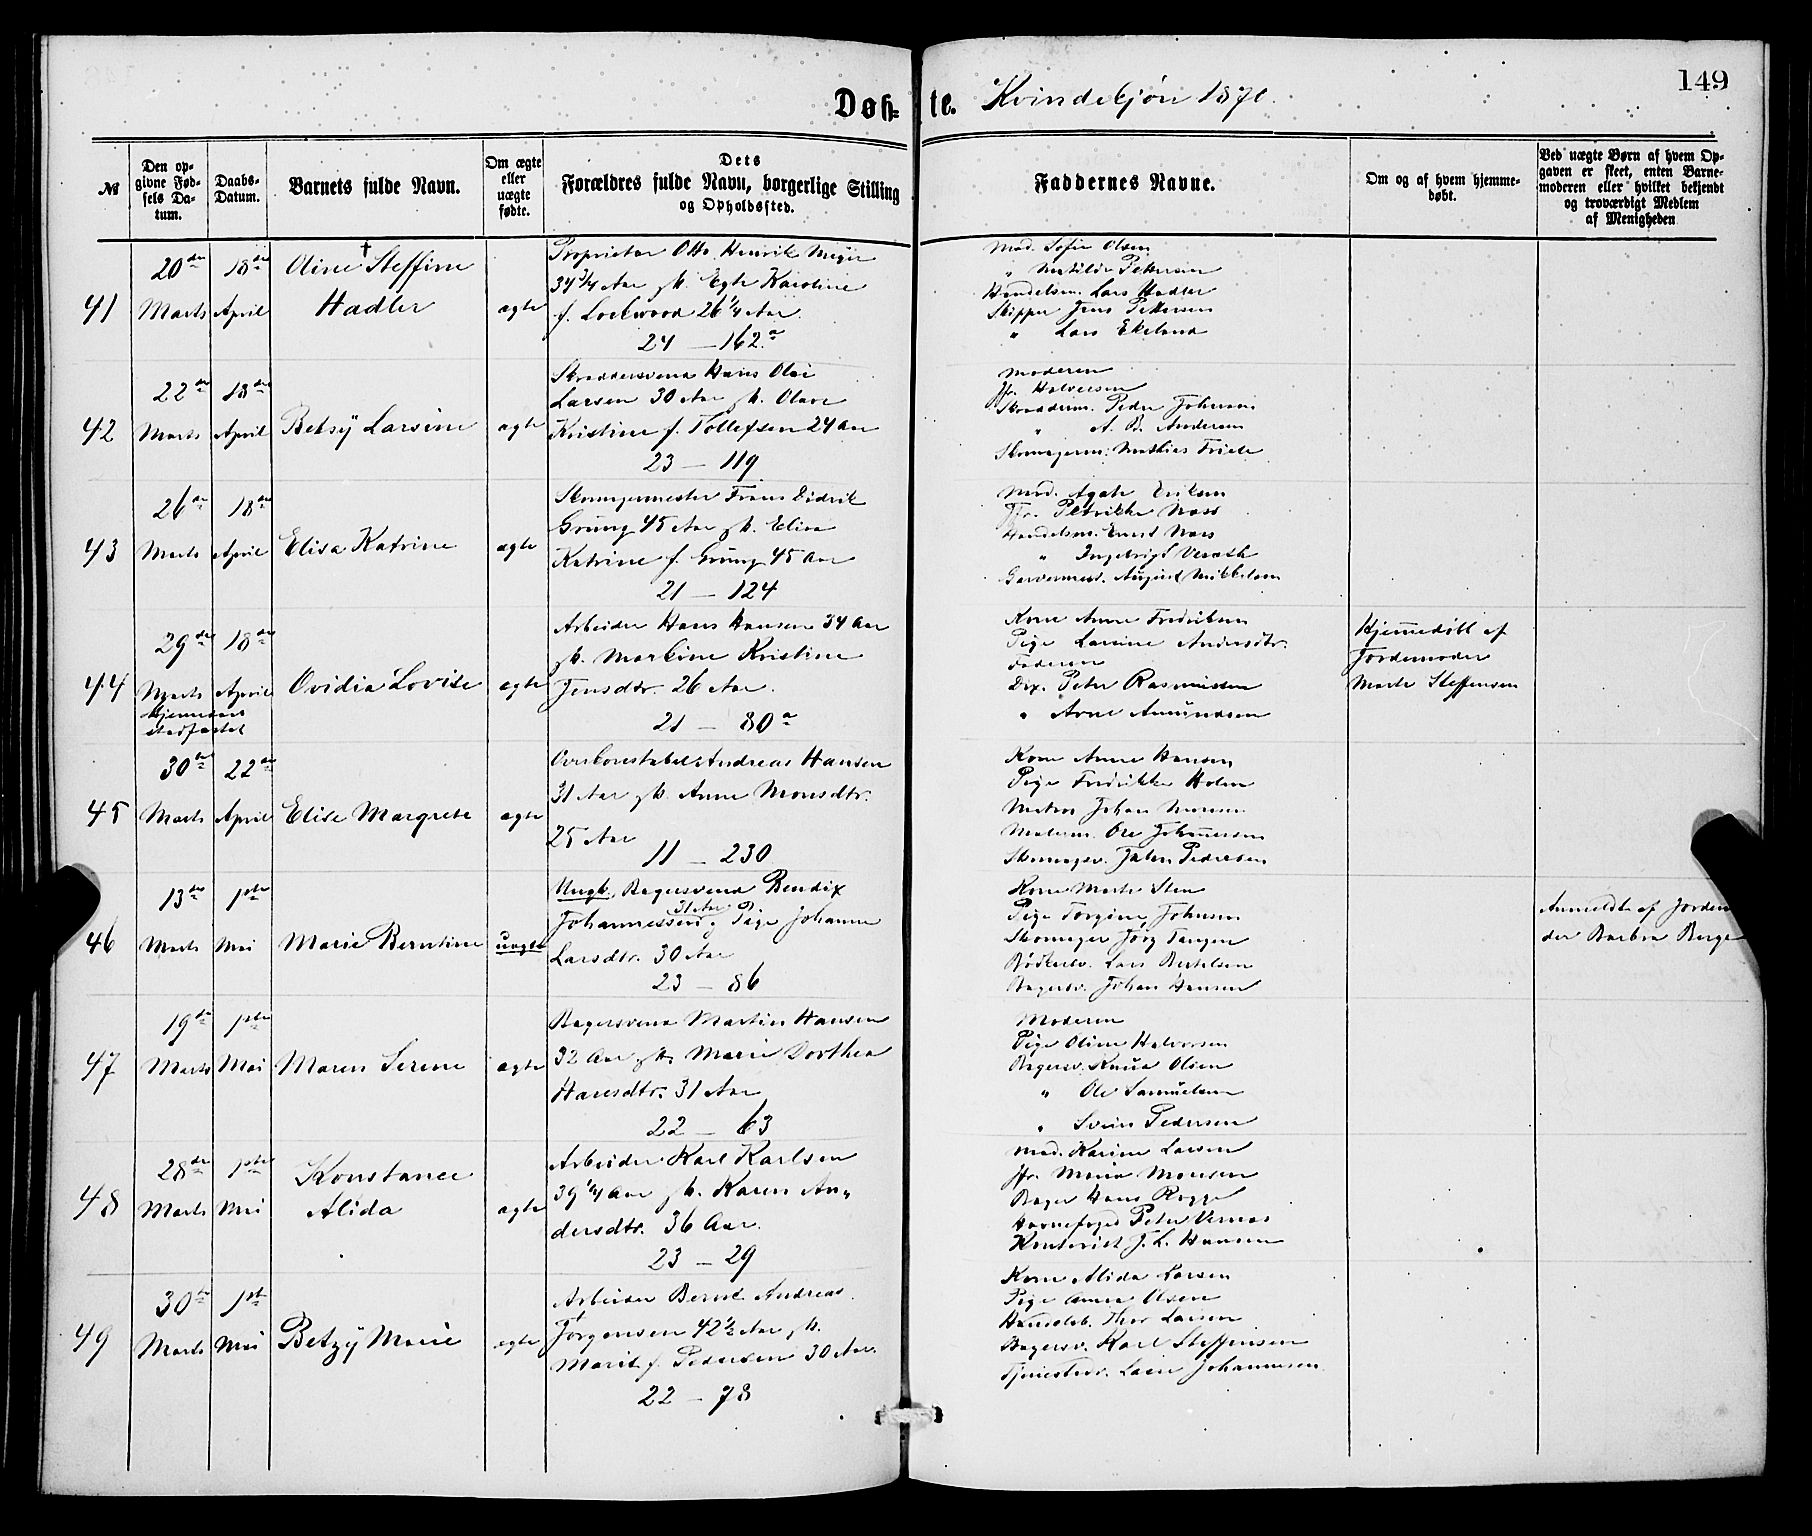 149
Døb= te. Kvindekjøn 1870.
№
Den op-
givne Fød-
sels Da-
tum.
Daabs-
Datum.
Barnets fulde Navn.
Om ægte
eller
uægte
fødte.
Dets
Forældres fulde Navn, borgerlige Stilling
og Opholdssted.
Faddernes Navne.
Om og af hvem hjemme-
døbt.
Ved uægte Børn af hvem Op-
gaven er skeet, enten Barne-
moderen eller hvilket bekjendt
og troværdigt Medlem
af Menigheden
41
20de
Marts
18de
April
Oline † Steffine
Hadler
ægte
Proprietær Otto Henrik Meyer
34 3/4 Aar Egte Karoline
f. Lockwood 26 1/4 Aar.
24 — 162 a
Mad. Sofie Olsen
" Matilde Pettersen
Handelsm. Lars Hadler
Skipper Jens Pettersen
" Lars Ekeland
42
22de
Marts
18de
April
Betsy Larsine
ægte
Skræddersvend Hans Olai
Larsen 30 Aar Olave
Kristine f. Tollefsen 24 Aar
23 — 119
Moderen
Jfr. Halvorsen
Skrædderm. Peder Johnsen
" A. B. Andersen
Skomagerm. Mathias Friele
43
26de
Marts
18de
April
Elisa Katrine
ægte
Skomagermester Frans Didrik
Grung 45 Aar Elisa
Katrine f. Grung 45 Aar
21 — 124
Mad. Agate Eriksen
Jfr. Petrikke Nass
Handelsm. Ernst Nass
" Ingebrigt
Garvermest. August Mikkelsen
44
29de
Marts
Hjemmed.
stadfæstet
18de
April
Ovidia Lovise
ægte
Arbeider Hans Hansen 34 Aar
Markine Kristine
Jensdtr. 26 Aar.
21 — 80 a
Kone Anne Fredriksen
Pige Larsine Andersdtr.
Faderen
Dix. Peter Rasmussen
" Arne Amundsen
Hjemmedøbt af
Jordemoder
Marte Steffensen
45
30de
Marts
22de
April
Elise Margrete
ægte
Overconstabel Andreas Hansen
31 Aar Anne Monsdtr.
25 Aar
11 — 230
Kone Anne Hansen
Pige Fredrikke Holm
Matros Johan Monsen
Malerm. Ole Johnnesen
Skomagsv. Peder­sen
46
13de
Marts
1ste
Mai
Marie Berntine
uægte
Ungk. Bagersvend Bendix
Johannessen 31 Aar, Pige Johanne
Larsdtr. 30 Aar
23 — 86
Kone Marte Sten
Pige Torgine Johnsen
Skomager Jørg Tangen
Bødkersv. Lars Bertelsen
Bagersv. Johan Hansen
Anmeldt af Jordem
der Barbra Berge
47
19de
Marts
1ste
Mai
Maren Serine
ægte
Bagersvend Martin Hansen
32 Aar Marie Dorthea
Hansdtr. 31 Aar
22 — 63
Moderen
Pige Oline Halvorsen
Bagersv. Knud Olsen
" Ole Samuelsen
" Svein Pedersen
48
28de
Marts
1ste
Mai
Konstance
Alida
ægte
Arbeider Karl Karlsen
39 1/4 Aar Karen An„
dersdtr. 36 Aar.
23 — 29
Mad. Karine Larsen
Jfr. Maria Monsen
Bager Hans Rogge
Havnefoged Peter Vernæs
Kontorist J. L. Hansen
49
30te
Marts
1ste
Mai
Betzy Marie
ægte
Arbeider Bernt Andreas
Jørgensen 42 1/2 Aar
Marit f. Pedersen 30 Aar.
22 — 78
Kone Alida Larsen
Pige Anne Olsen
Handelsb. Thor Larsen
Bagersv. Karl Steffensen
Tjenestedr. Johannesen